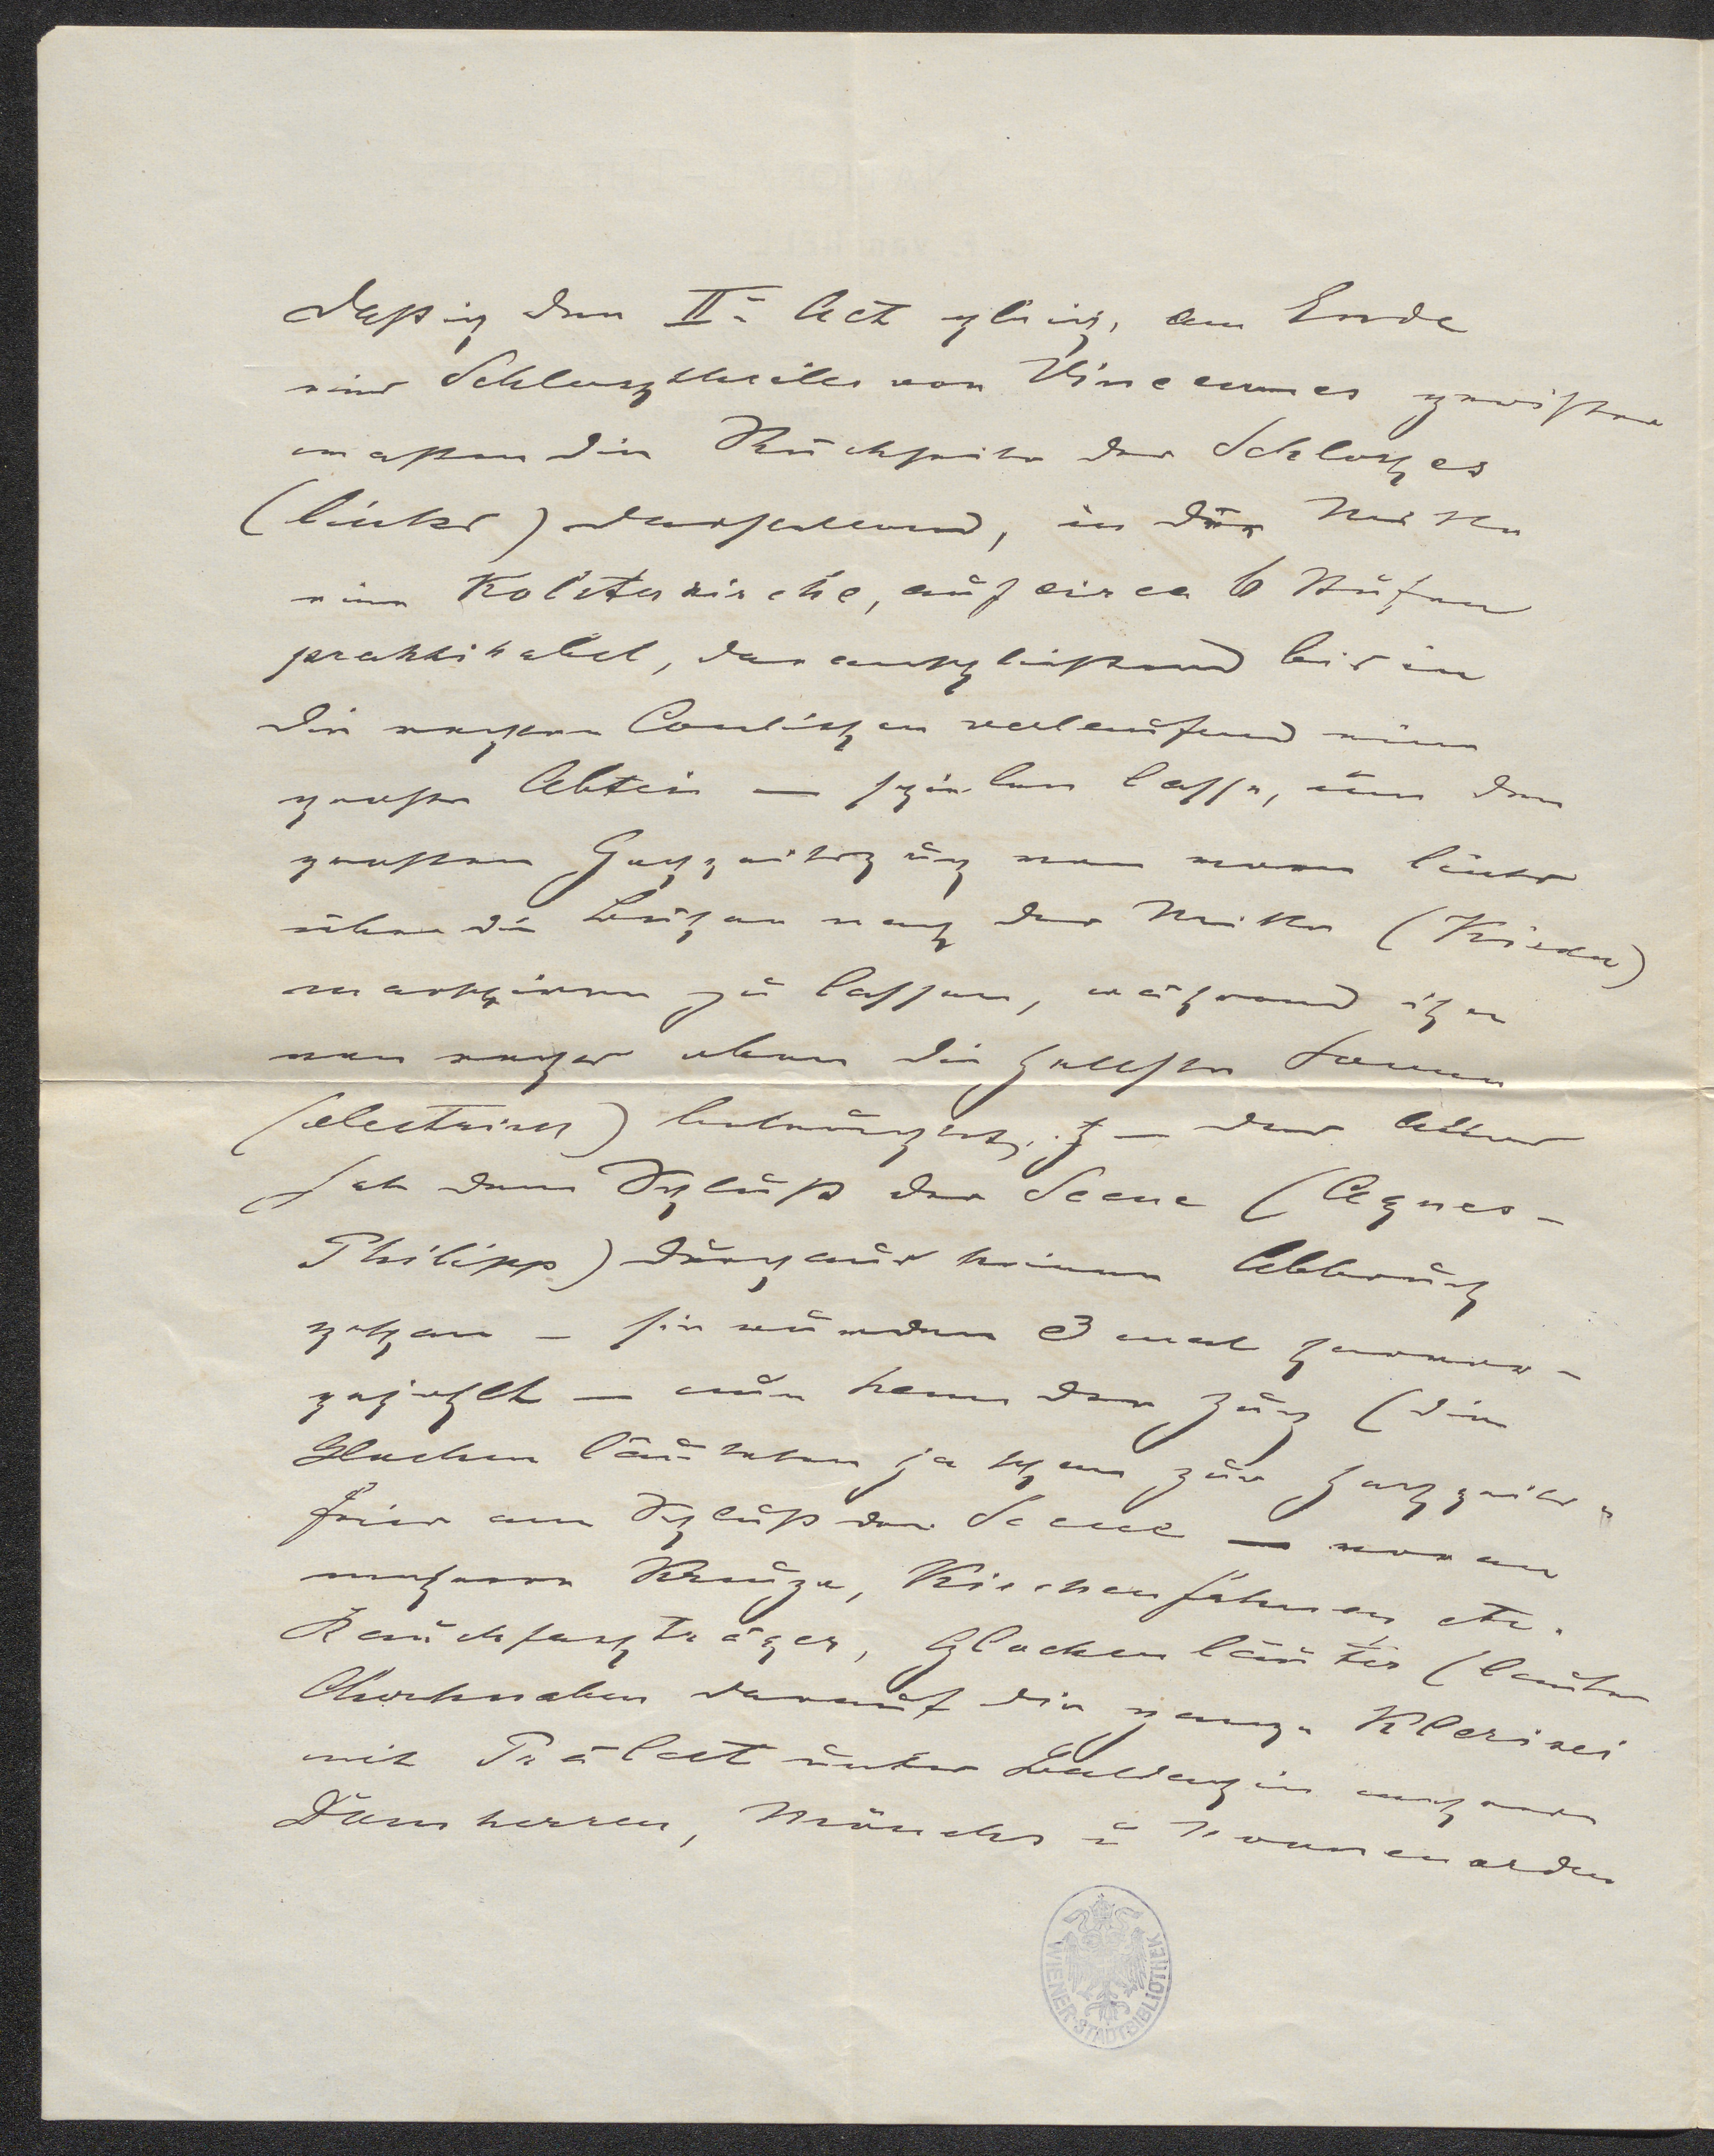 daß ich den II<sup>n</sup> Act gleich, am Ende
eines Schlosztheiles von Vincennes gewisser
maßen die Rückseite des Schloszes
(links) darstellend, in der Mitte
eine Kolsterkirche, auf circa 6 Stufen
praktikabel, daranschließend bis in
die rechten Coulissen verlaufend eine
große Abtei — spielen lasse, um den
großen Hochzeitszug von vorn links
über die Bühne nach der Mitte (Kirche)
marschieren zu lassen, während ihn
von rechts oben die hellste Sonne
(electrisch) – der Act
hat dem Schluß der Scene (Agnes-
Philipp) durchaus keinen Abbruch
gethan – sie wurden 3 mal hervor-
gejubelt — nun kam der Zug (die
Glocken läuteten ja schon zur Hochzeits-
feier am Schluß der Scene — voran
mehrere Kreuze, Kirchenfahnen etc.
Rauchfaszträger, Glockenläuter (lauter
Chorknaben darauf die ganze Klerisei
mit Prälat unter Baldachin mehrere
Domherren, Mönchs u Nonnenorden
WIENER-STADTBIBLIOTHEK